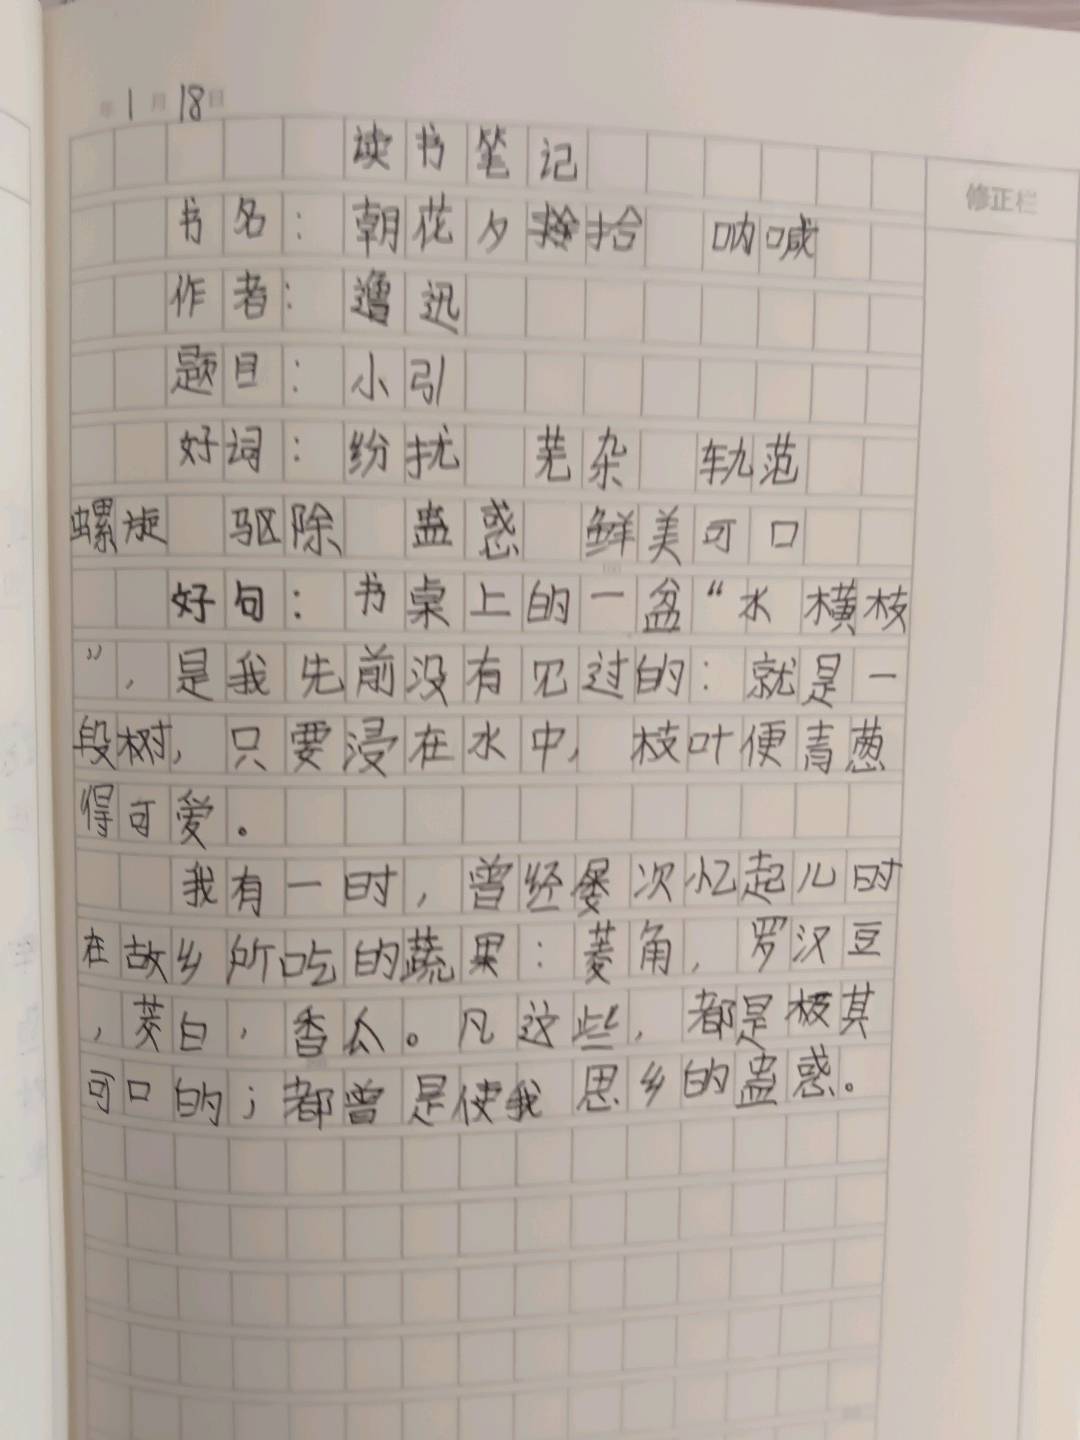 年1月18日
读书笔记
修正栏
书名：朝花夕拾 呐喊
作者：迅
题目：小引
好词：纷扰 芜杂 轨范
螺旋 驱除 蛊惑 鲜美可口
好句：书桌上的一盆“水横枝
”，是我先前没有见过的：就是一
段树，只要浸在水中，枝叶便青葱
得可爱。
我有一时，曾经屡次忆起儿时
在故乡所吃的蔬果：菱角，罗汉豆
，茭白，香瓜。凡这些，都是极其
可口的；都曾是使我思乡的蛊惑。